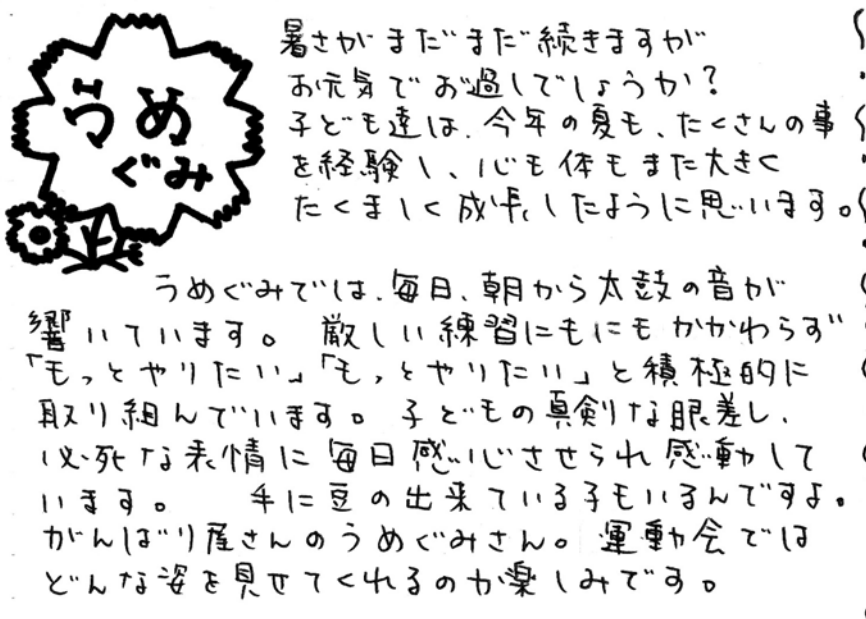 うめ
ぐみ
暑さが まだまだ 続きますが
お元気で お過しでしょうか？
子ども達は、今年の夏も、たくさんの事
を経験し、心も体もまた大きく
たくましく成長したように思います。
うめぐみでは、毎日、朝から太鼓の音が
響いています。 厳しい練習にもにもかかわらず
「もっとやりたい」「もっとやりたい」と積極的に
取り組んでいます。子どもの真剣な眼差し、
必死な表情に毎日感心させられ感動して
います。 手に豆の出来ている子もいるんですよ。
がんばり屋さんのうめぐみさん。運動会では
どんな姿を見せてくれるのか楽しみです。